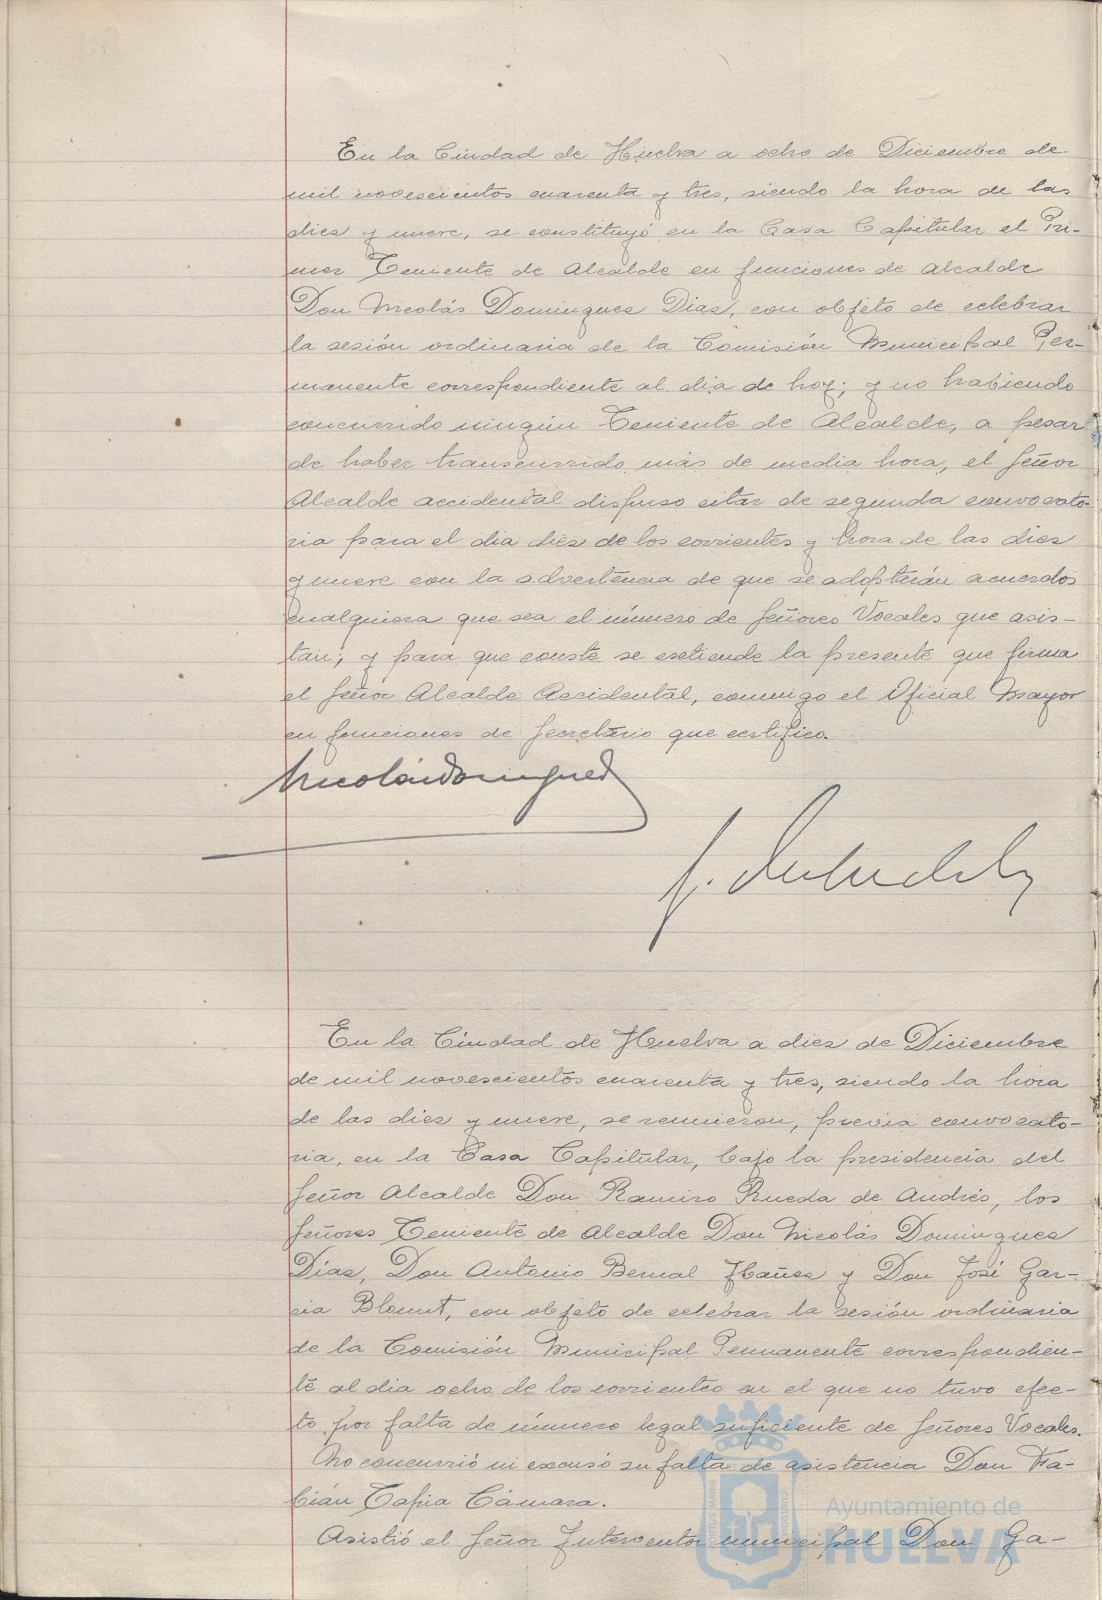 En la Ciudad de Huelva a ocho de Diciembre de
mil novescientos cuarenta y tres, siendo la hora de las
diez y nueve, se constituyó en la Casa Capitular el Pri-
mer Teniente de Alcalde en funciones de Alcalde
Don Nicolás Dominguez Diaz, con objeto de celebrar
la sesión ordinaria de la Comisión Municipal Per-
manente correspondiente al dia de hoy; y no habiendo
concurrido ningún Teniente de Alcalde, a pesar
de haber transcurrido más de media hora, el Señor
Alcalde accidental dispuso citar de segunda convocato-
ria para el dia diez de los corrientes y hora de las diez
y nueve con la advertencia de que se adopterán acuerdos
cualquiera que sea el número de Señores Vocales que asis-
tan; y para que conste se exetiende la presente que firma
el Señor Alcalde Accidental, conmigo el Oficial Mayor
en funciones de Secretario que certifico.
Nicolás Dominguez
En la Ciudad de Huelva a diez de Diciembre
de mil novescientos cuarenta y tres, siendo la hora
de las diez y nueve, se reunieron, previa convocato-
ria, en la Casa Capitular, bajo la presidencia del
Señor Alcalde Don Ramiro Rueda de Andrés, los
Señores Teniente de Alcalde Don Nicolás Dominguez
Díaz, Don Antonio Bernal Ibañez y Don José Gar-
cia Blomt, con objeto de celebrar la sesión ordinaria
de la Comisión Municipal Permanente correspondien-
te al dia ocho de los corrientes en el que no tuvo efec-
to por falta de número legal suficiente de Señores Vocales.
No concurrió ni excusó su falta de asistencia Don Fa-
bián Tapia Cámara.
Asistió el Señor Interventor municipal Don Ga-
Ayuntamiento de
HUELVA